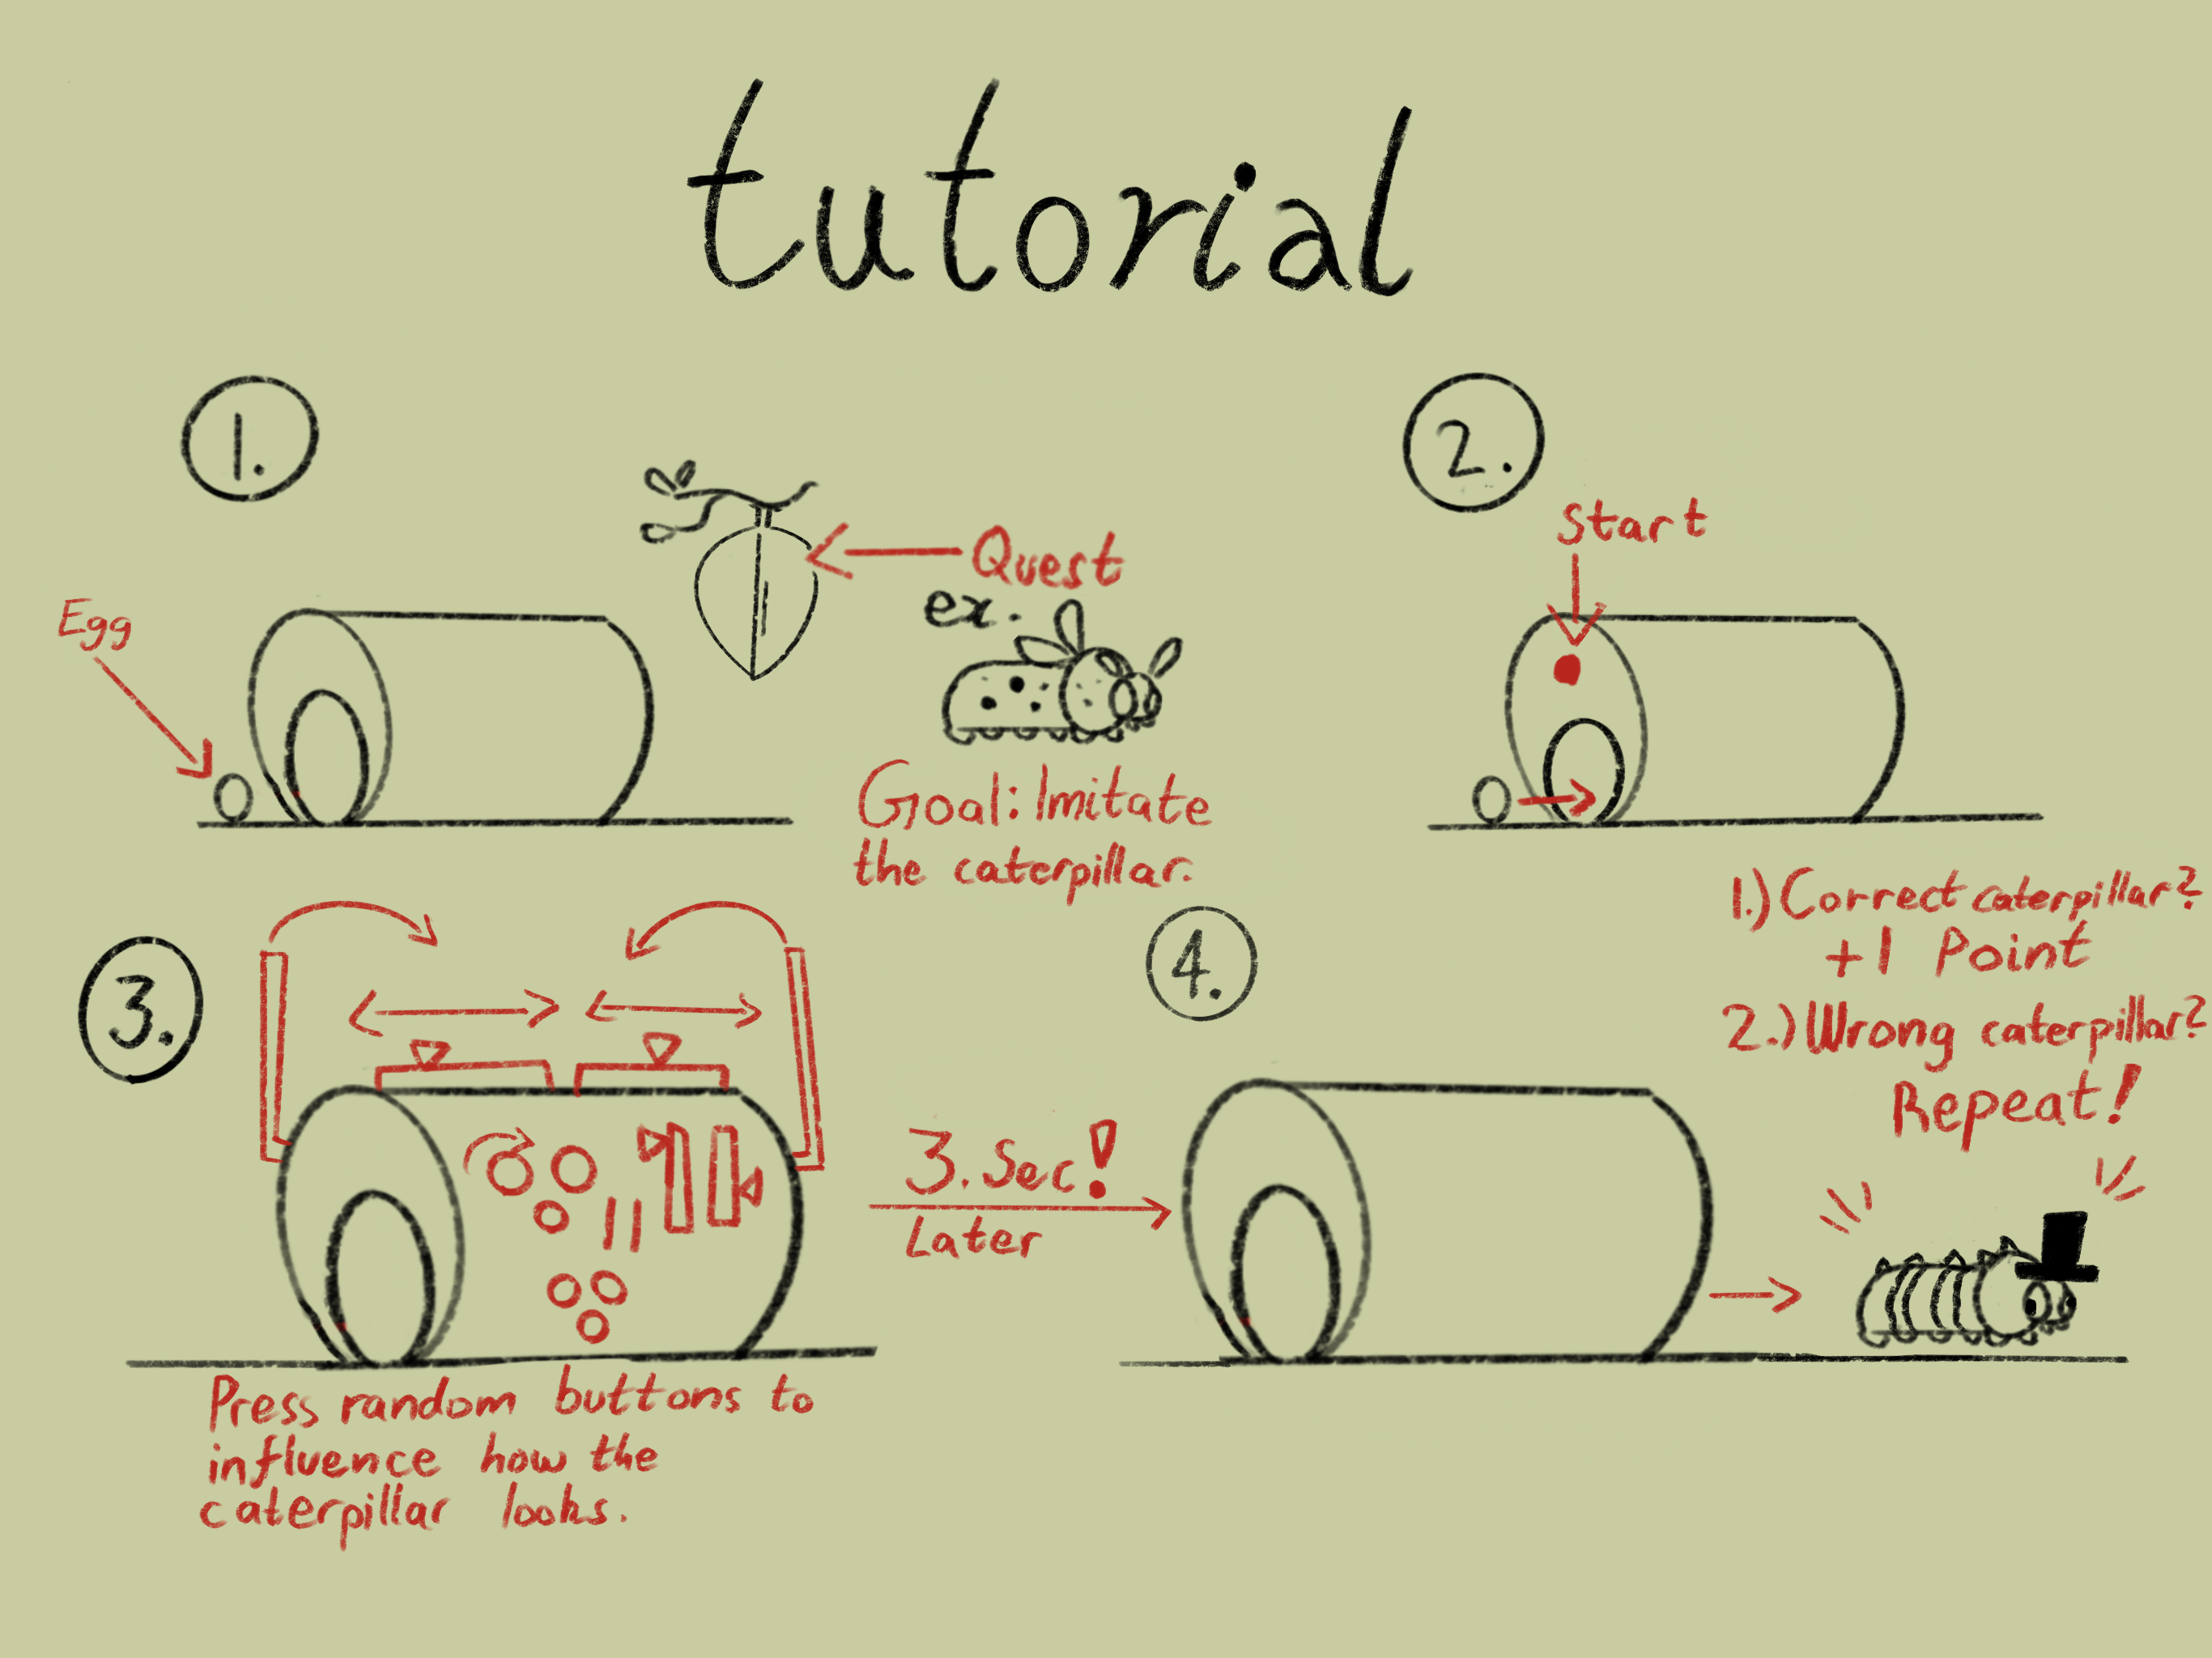 tutorial
1.
Egg
Quest
ex.
Goal: Imitate
the caterpillar.
2.
Start
3.
Press random buttons to
influence how the
caterpillar looks.
3. Sec!
Later
4.
1.) Correct caterpillar?
+1 Point
2.) Wrong caterpillar?
Repeat!